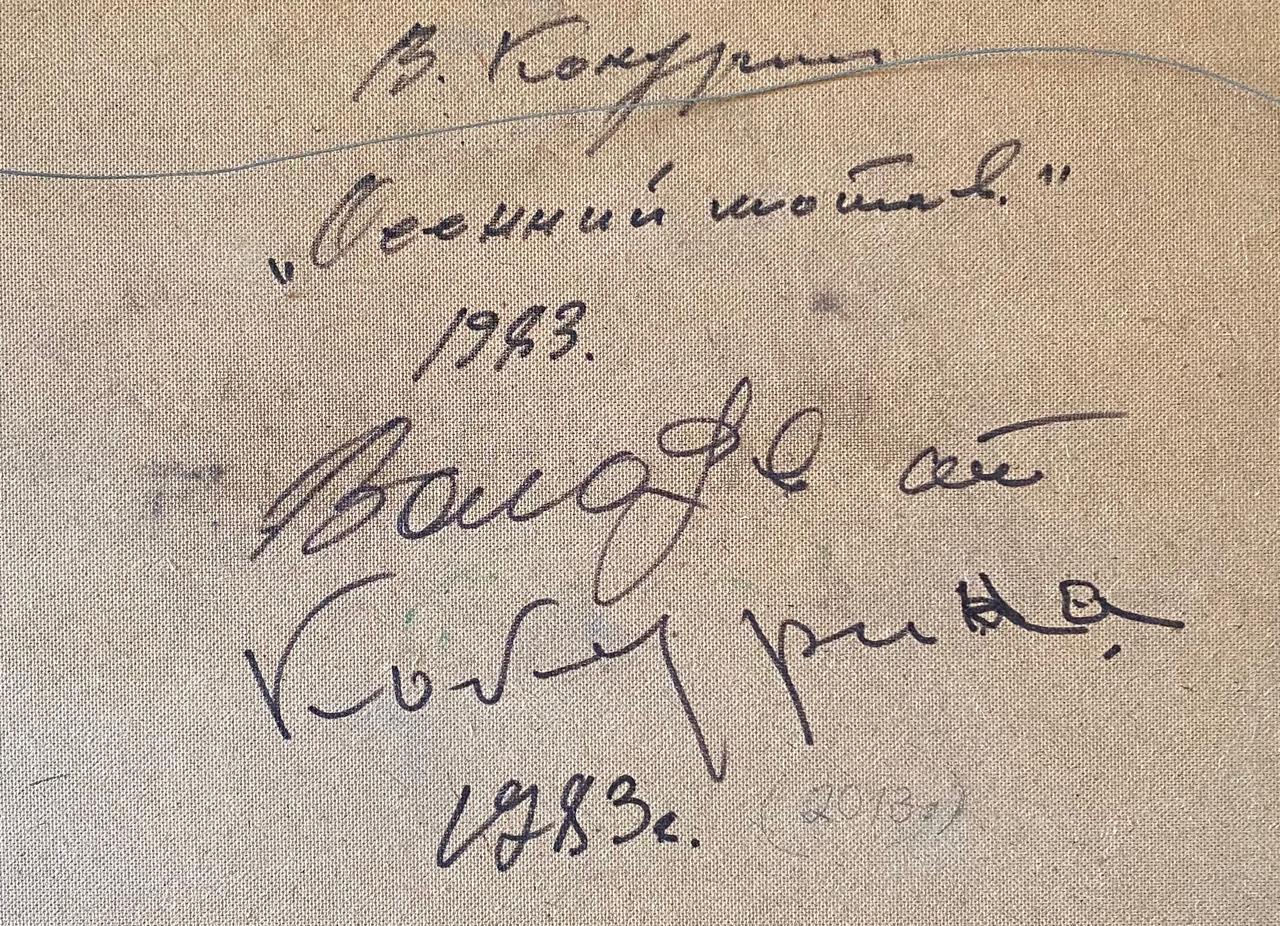 В. Кокурин
„Осенний мотив."
1983.
Володе от
Кокурина.
1983г. (2013г)